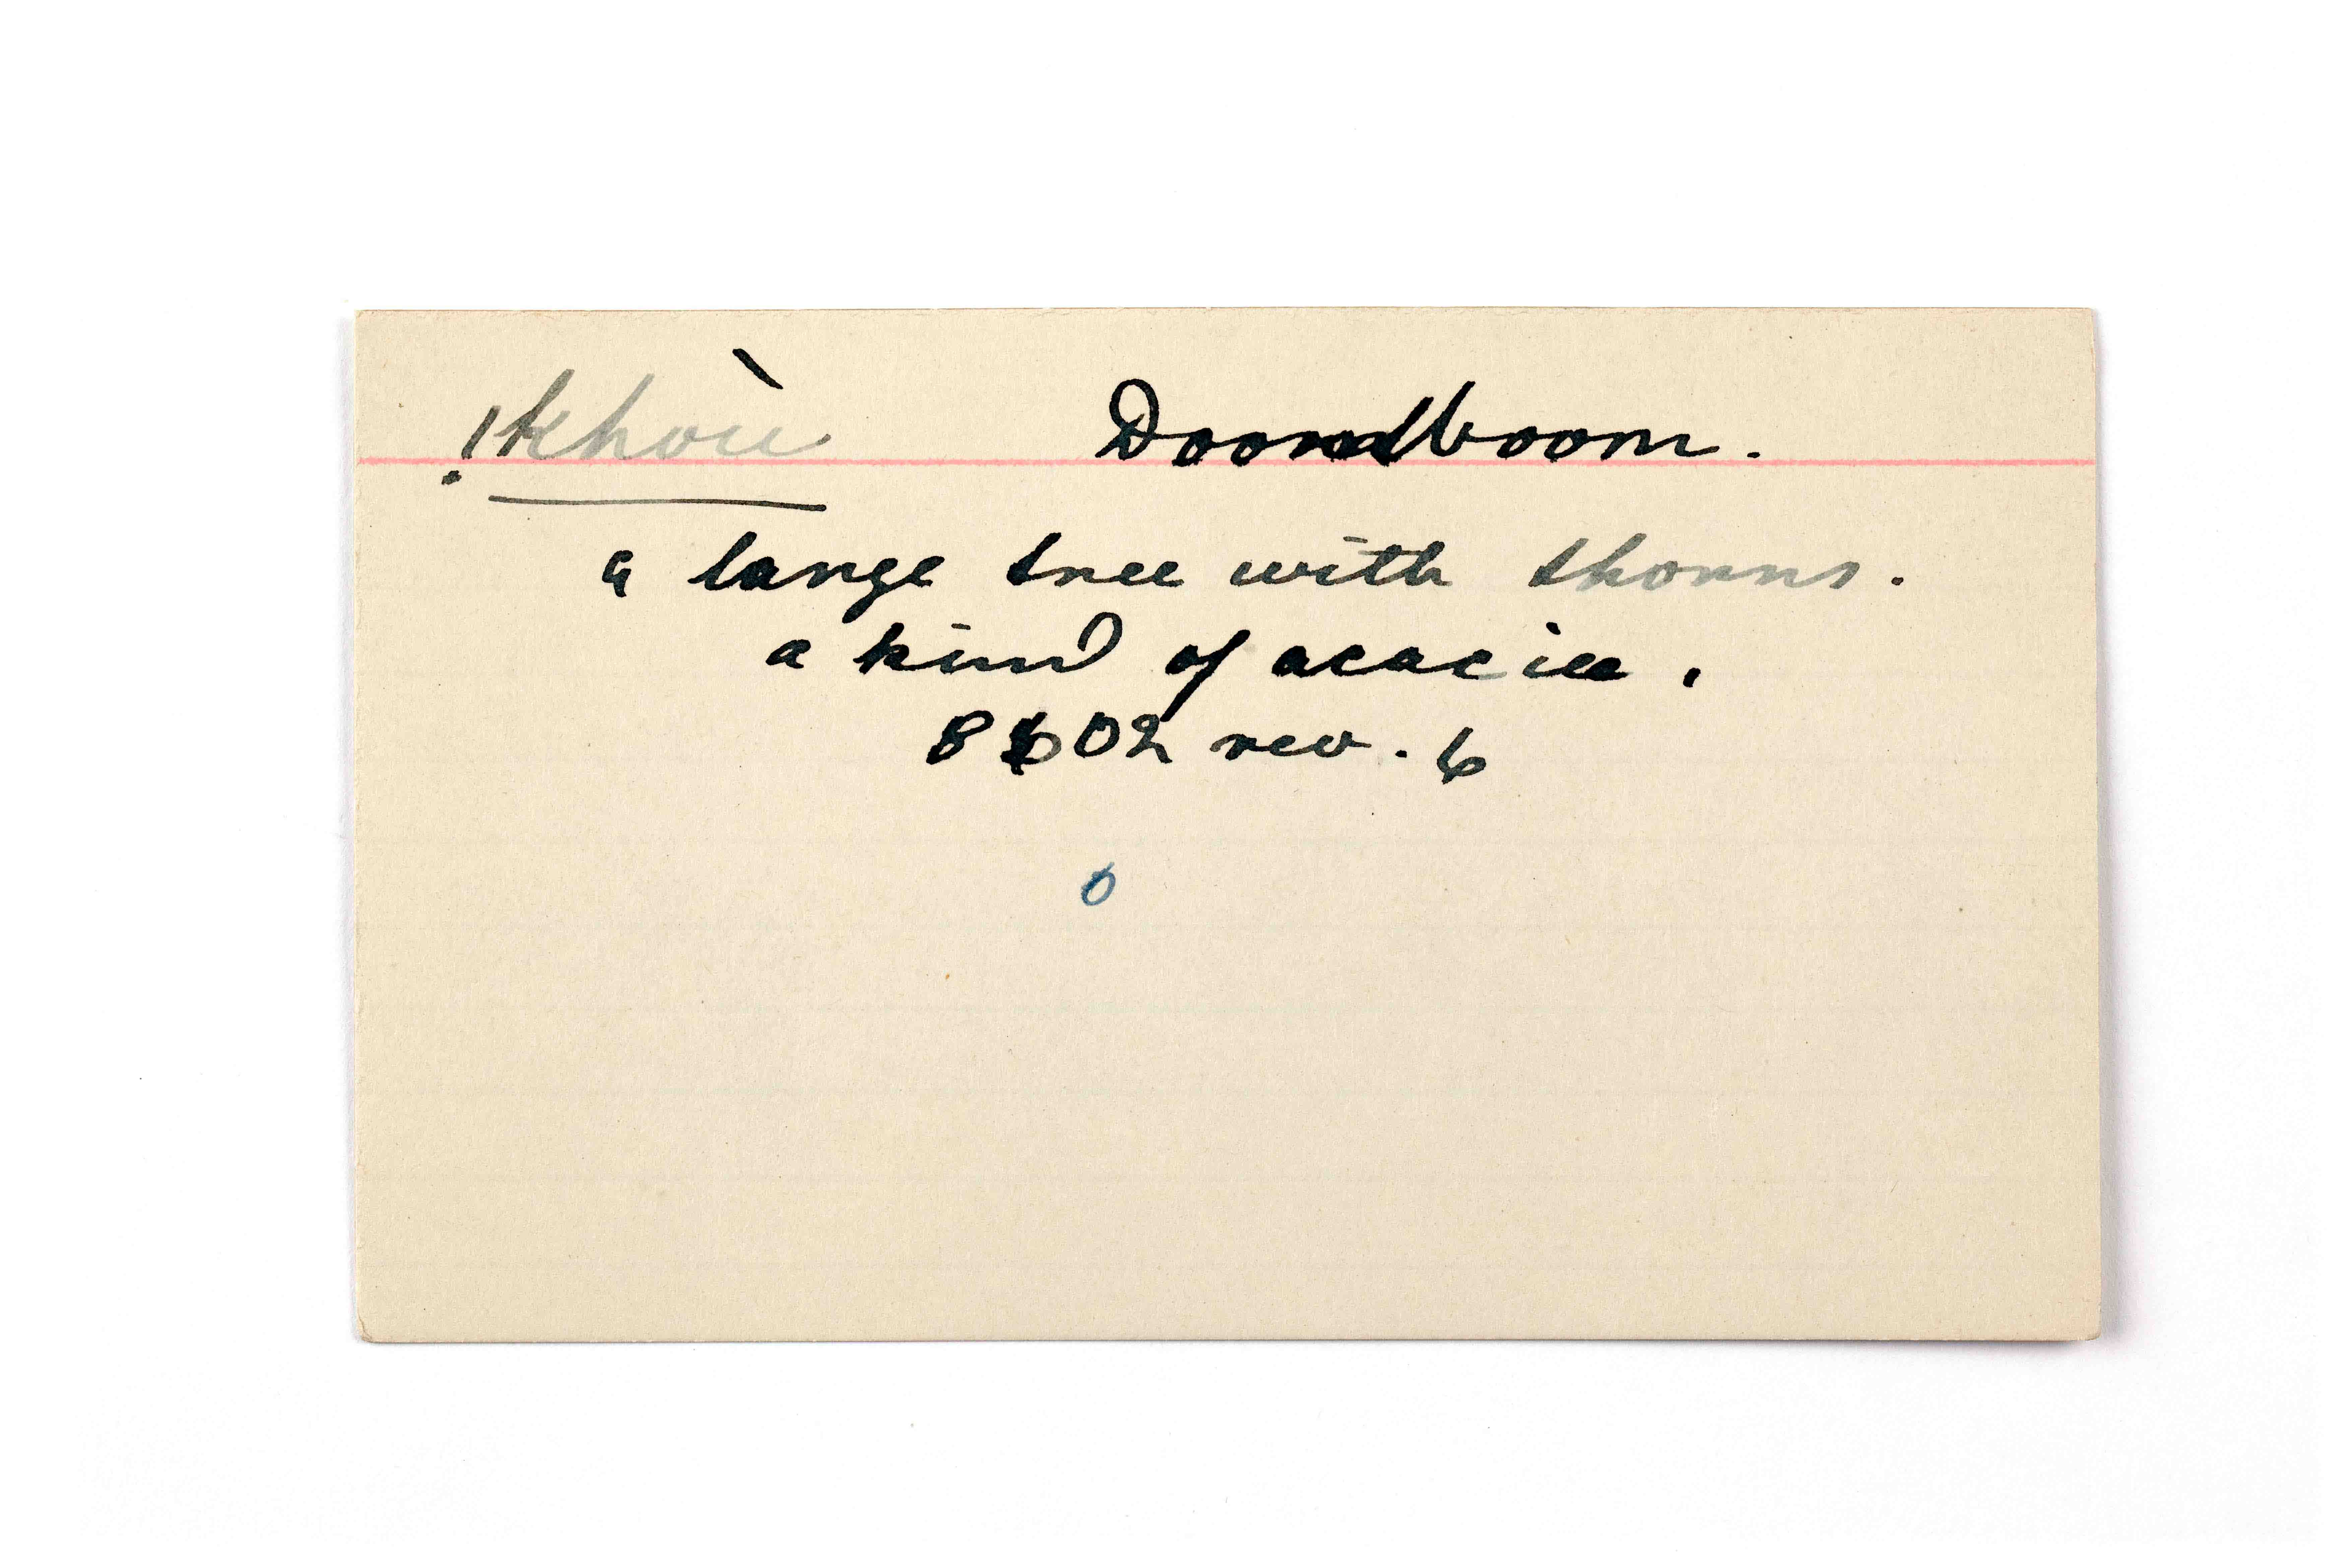 !khoù Doornboom.
a large tree with thorns.
a kind of acacia.
8602 rev. 6
6